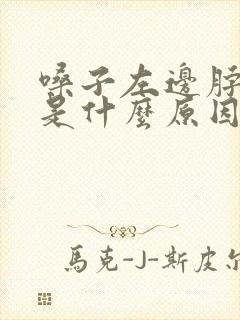 嗓子左邊脖
是什麼原因
馬克-J-斯皮尔